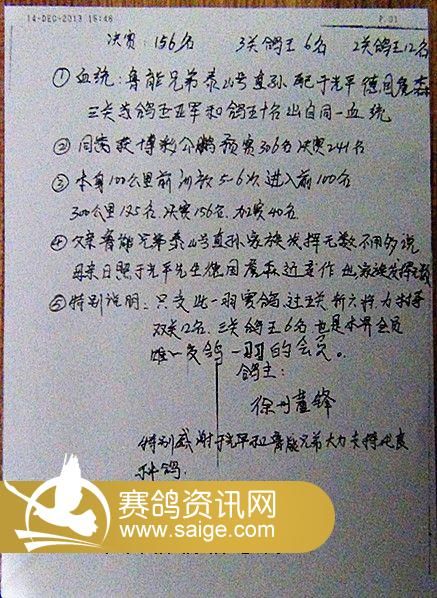 14-DEC-2013 15:46 P.01
决赛：156名 3关鸽王6名 2关鸽王12名
①血统：鲁能兄弟泰山号直孙 配于光平德国詹森
三关夺鸽王亚军和鸽王十名出自同一血统
②同窝获博彩公鹏预赛306名决赛241名
③本身100公里前训放5-6次进入前100名
300公里125名决赛156名加赛40名
④父亲鲁能兄弟泰山号直孙家族发挥无数不用多说
母亲日照于光平先生德国詹森近亲作出家族发挥无数
⑤特别说明：只交此一羽赛鸽过五关斩六将力拼
双关12名三关鸽王6名也是本界会员
唯一交鸽一羽的会员。
鸽主：
徐丹 锋
特别感谢于光平和鲁能兄弟大力支持优良
种鸽.
赛鸽资讯网
www.saige.com